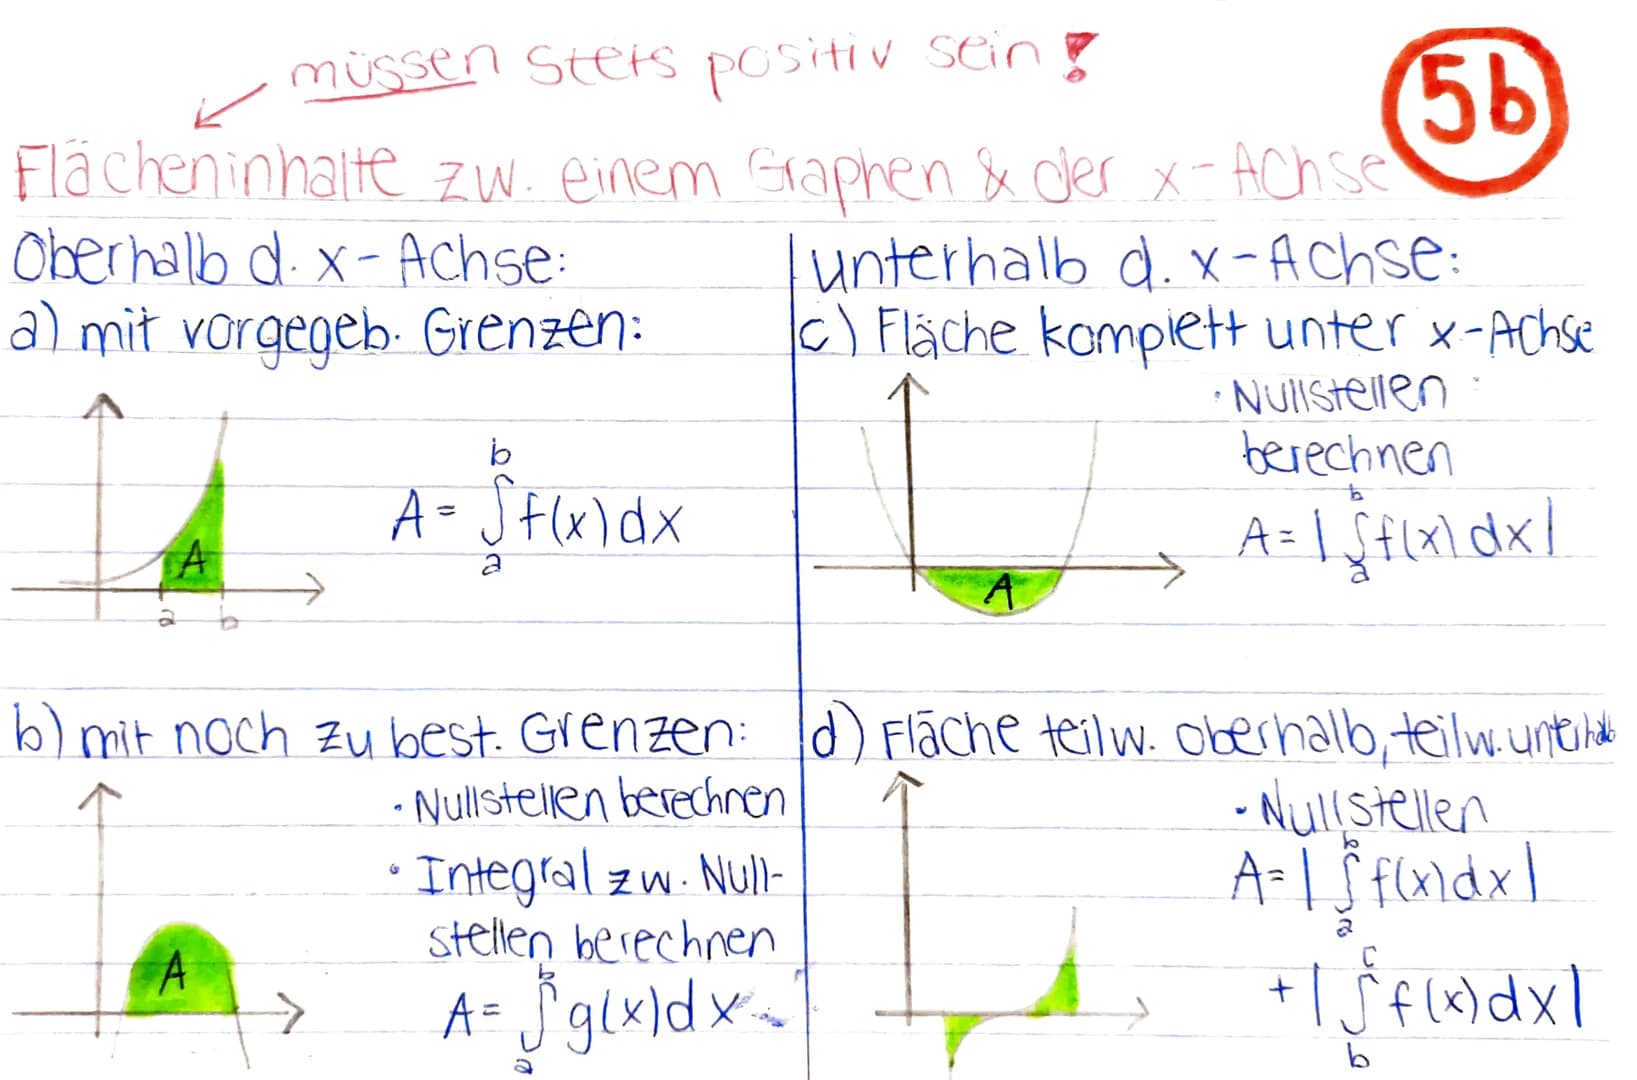 müssen stets positiv sein!
5b
Flächeninhalte zw. einem Graphen & der x-Achse
Oberhalb d. x-Achse:
a) mit vorgegeb. Grenzen:
A
a b
b
A = ∫ f(x) dx
a
b) mit noch zu best. Grenzen:
• Nullstellen berechnen
• Integral zw. Null-
stellen berechnen
A
b
A = ∫ g(x) dx
a
unterhalb d. x-Achse:
c) Fläche komplett unter x-Achse
• Nullstellen
berechnen
b
A = | ∫ f(x) dx |
a
A
d) Fläche teilw. oberhalb, teilw. unterhalb
• Nullstellen
b
A = | ∫ f(x) dx |
a
c
+ | ∫ f(x) dx |
b